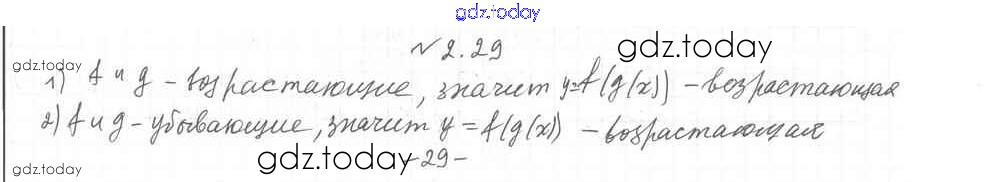 gdz.today
№ 2.29
gdz.today
gdz.today
1) f и g - возрастающие, значит y=f(g(x)) - возрастающая
2) f и g - убывающие, значит y=f(g(x)) - возрастающая
gdz.today
gdz.today
-29-